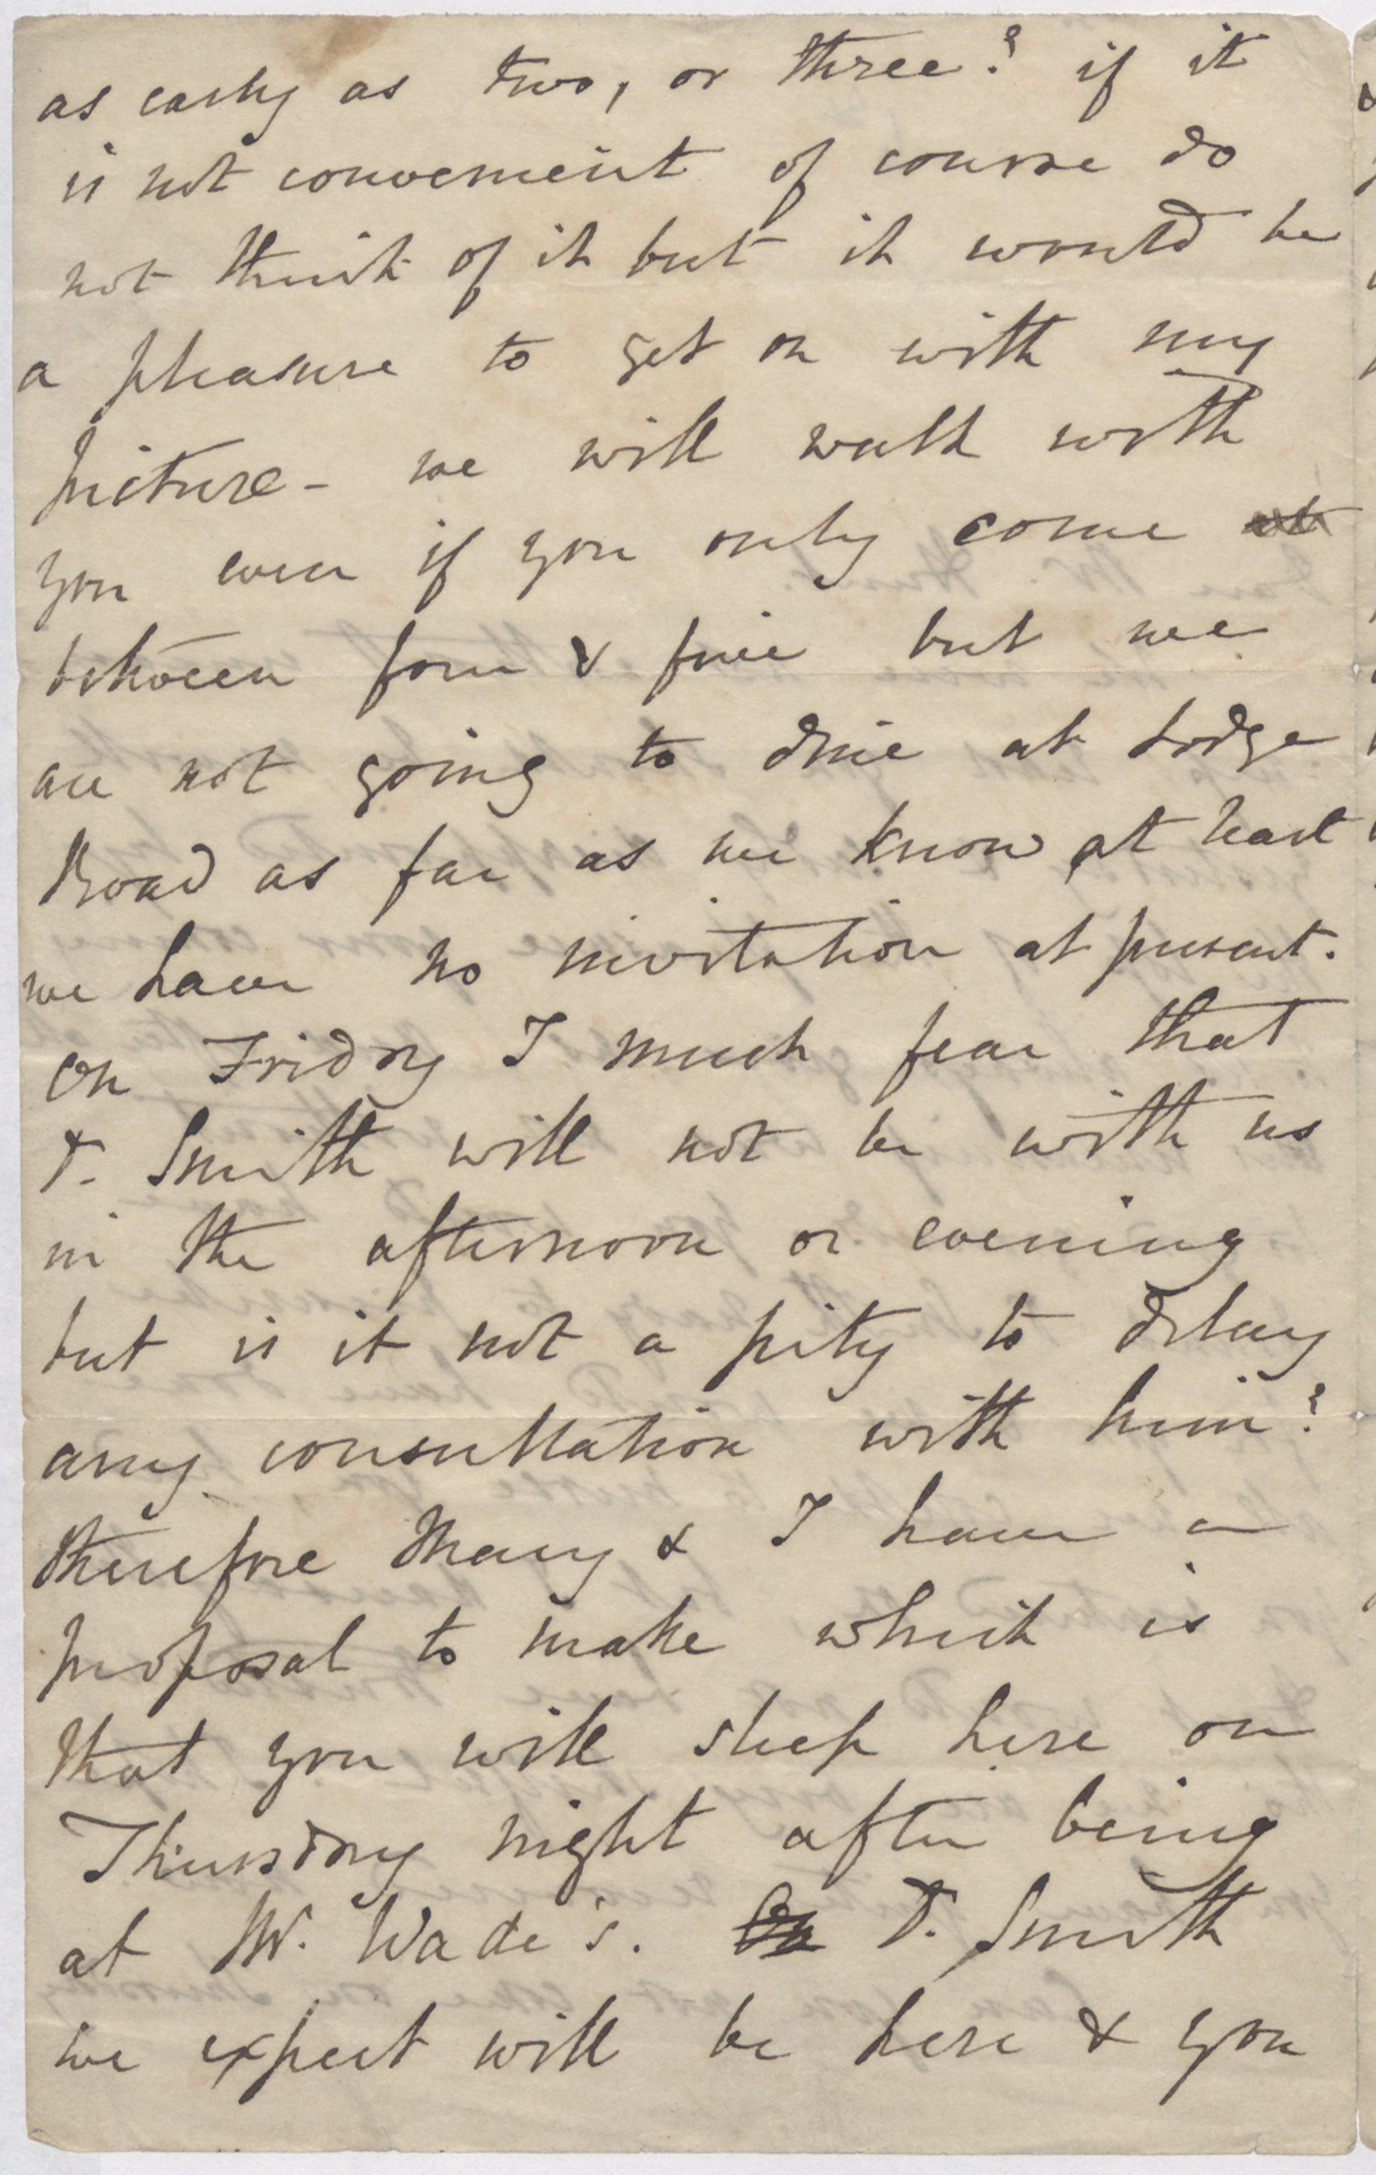 as early as two, or three? if it
is not convenient of course do
not think of it but it would be
a pleasure to get on with my
picture - we will walk with
you even if you only come at
between four & five but we
are not going to dine at Lodge
Road as far as we know, at least
we have no invitation at present.
On Friday I much fear that
T. Smith will not be with us
in the afternoon or evening
but is it not a pity to delay
any consultation with him?
therefore Mary & I have a
proposal to make which is
that you will sleep here on
Thursday night after being
at Mr. Wade's. On T. Smith
we expect will be here & you